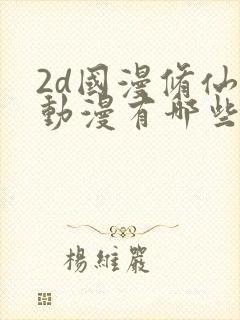 2d國漫脩仙
動漫有哪些
楊維嚴